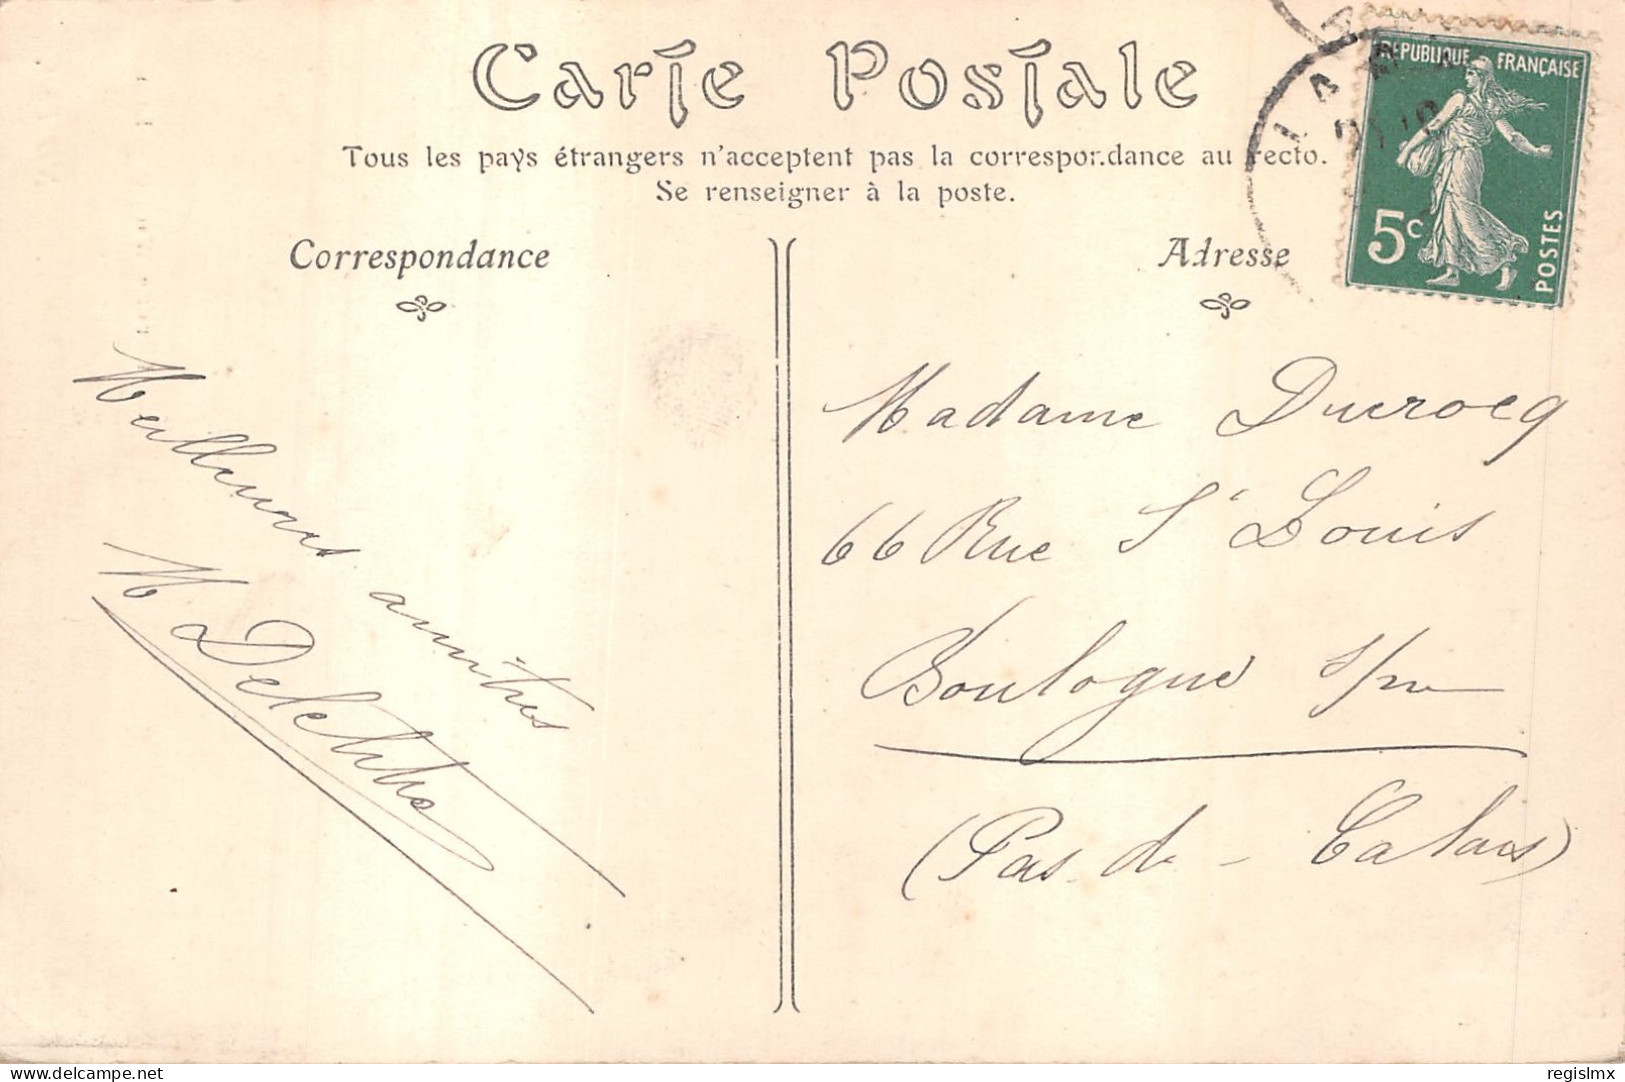 Carte Postale
Tous les pays étrangers n'acceptent pas la correspondance au recto.
Se renseigner à la poste.
Correspondance
Adresse
RÉPUBLIQUE FRANÇAISE
5c
POSTES
Meilleures amitiés
Madame Ducrocq
66 Rue St Louis
Boulogne s/m
(Pas-de-Calais)
www.delcampe.net
regislmx